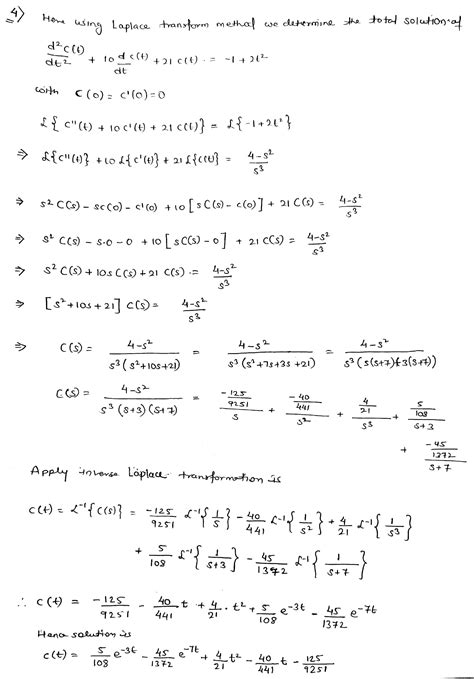 4) Here using Laplace transform method we determine the total solution of
d²c(t)/dt² + 10 d c(t)/dt + 21 c(t) = -1+2t²
with c(0) = c'(0) = 0
ℒ{ c''(t) + 10 c'(t) + 21 c(t)} = ℒ{-1+2t²}
⇒ ℒ{c''(t)} + 10 ℒ{c'(t)} + 21 ℒ{c(t)} = (4-s²)/s³
⇒ s² C(s) - sc(0) - c'(0) + 10 [s C(s) - c(0)] + 21 C(s) = (4-s²)/s³
⇒ s² C(s) - s·0 - 0 + 10 [sC(s) - 0] + 21 C(s) = (4-s²)/s³
⇒ s² C(s) + 10s C(s) + 21 C(s) = (4-s²)/s³
⇒ [s² + 10s + 21] C(s) = (4-s²)/s³
⇒ C(s) = (4-s²)/(s³(s²+10s+21)) = (4-s²)/(s³(s²+7s+3s+21)) = (4-s²)/(s³(s(s+7)+3(s+7))
C(s) = (4-s²)/(s³(s+3)(s+7)) = (-125/9251)/s + (-40/441)/s² + (4/21)/s³ + (5/108)/(s+3)
+ (-45/1372)/(s+7)
Apply inverse Laplace transformation is
c(t) = ℒ⁻¹{C(s)} = -125/9251 ℒ⁻¹{1/s} - 40/441 ℒ⁻¹{1/s²} + 4/21 ℒ⁻¹{1/s³}
+ 5/108 ℒ⁻¹{1/(s+3)} - 45/1372 ℒ⁻¹{1/(s+7)}
∴ c(t) = -125/9251 - 40/441 t + 4/21 · t² + 5/108 e^-3t - 45/1372 e^-7t
Hence solution is
c(t) = 5/108 e^-3t - 45/1372 e^-7t + 4/21 t² - 40/441 t - 125/9251